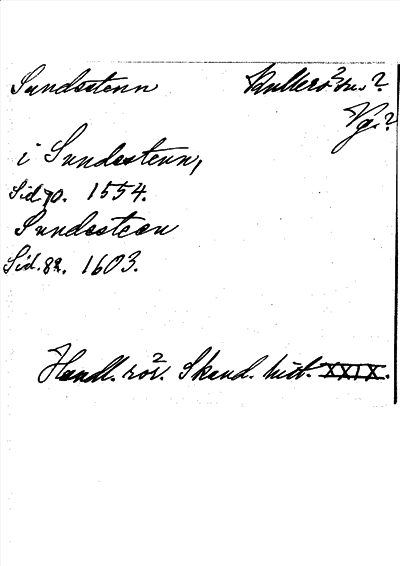 Sundsstenn Kullers hd.?
Vg.?
i Sundsstenn,
Sid. 70. 1554.
Sundssteen
Sid. 82. 1603.
Handl. rör. Skand. hist. XXIX.